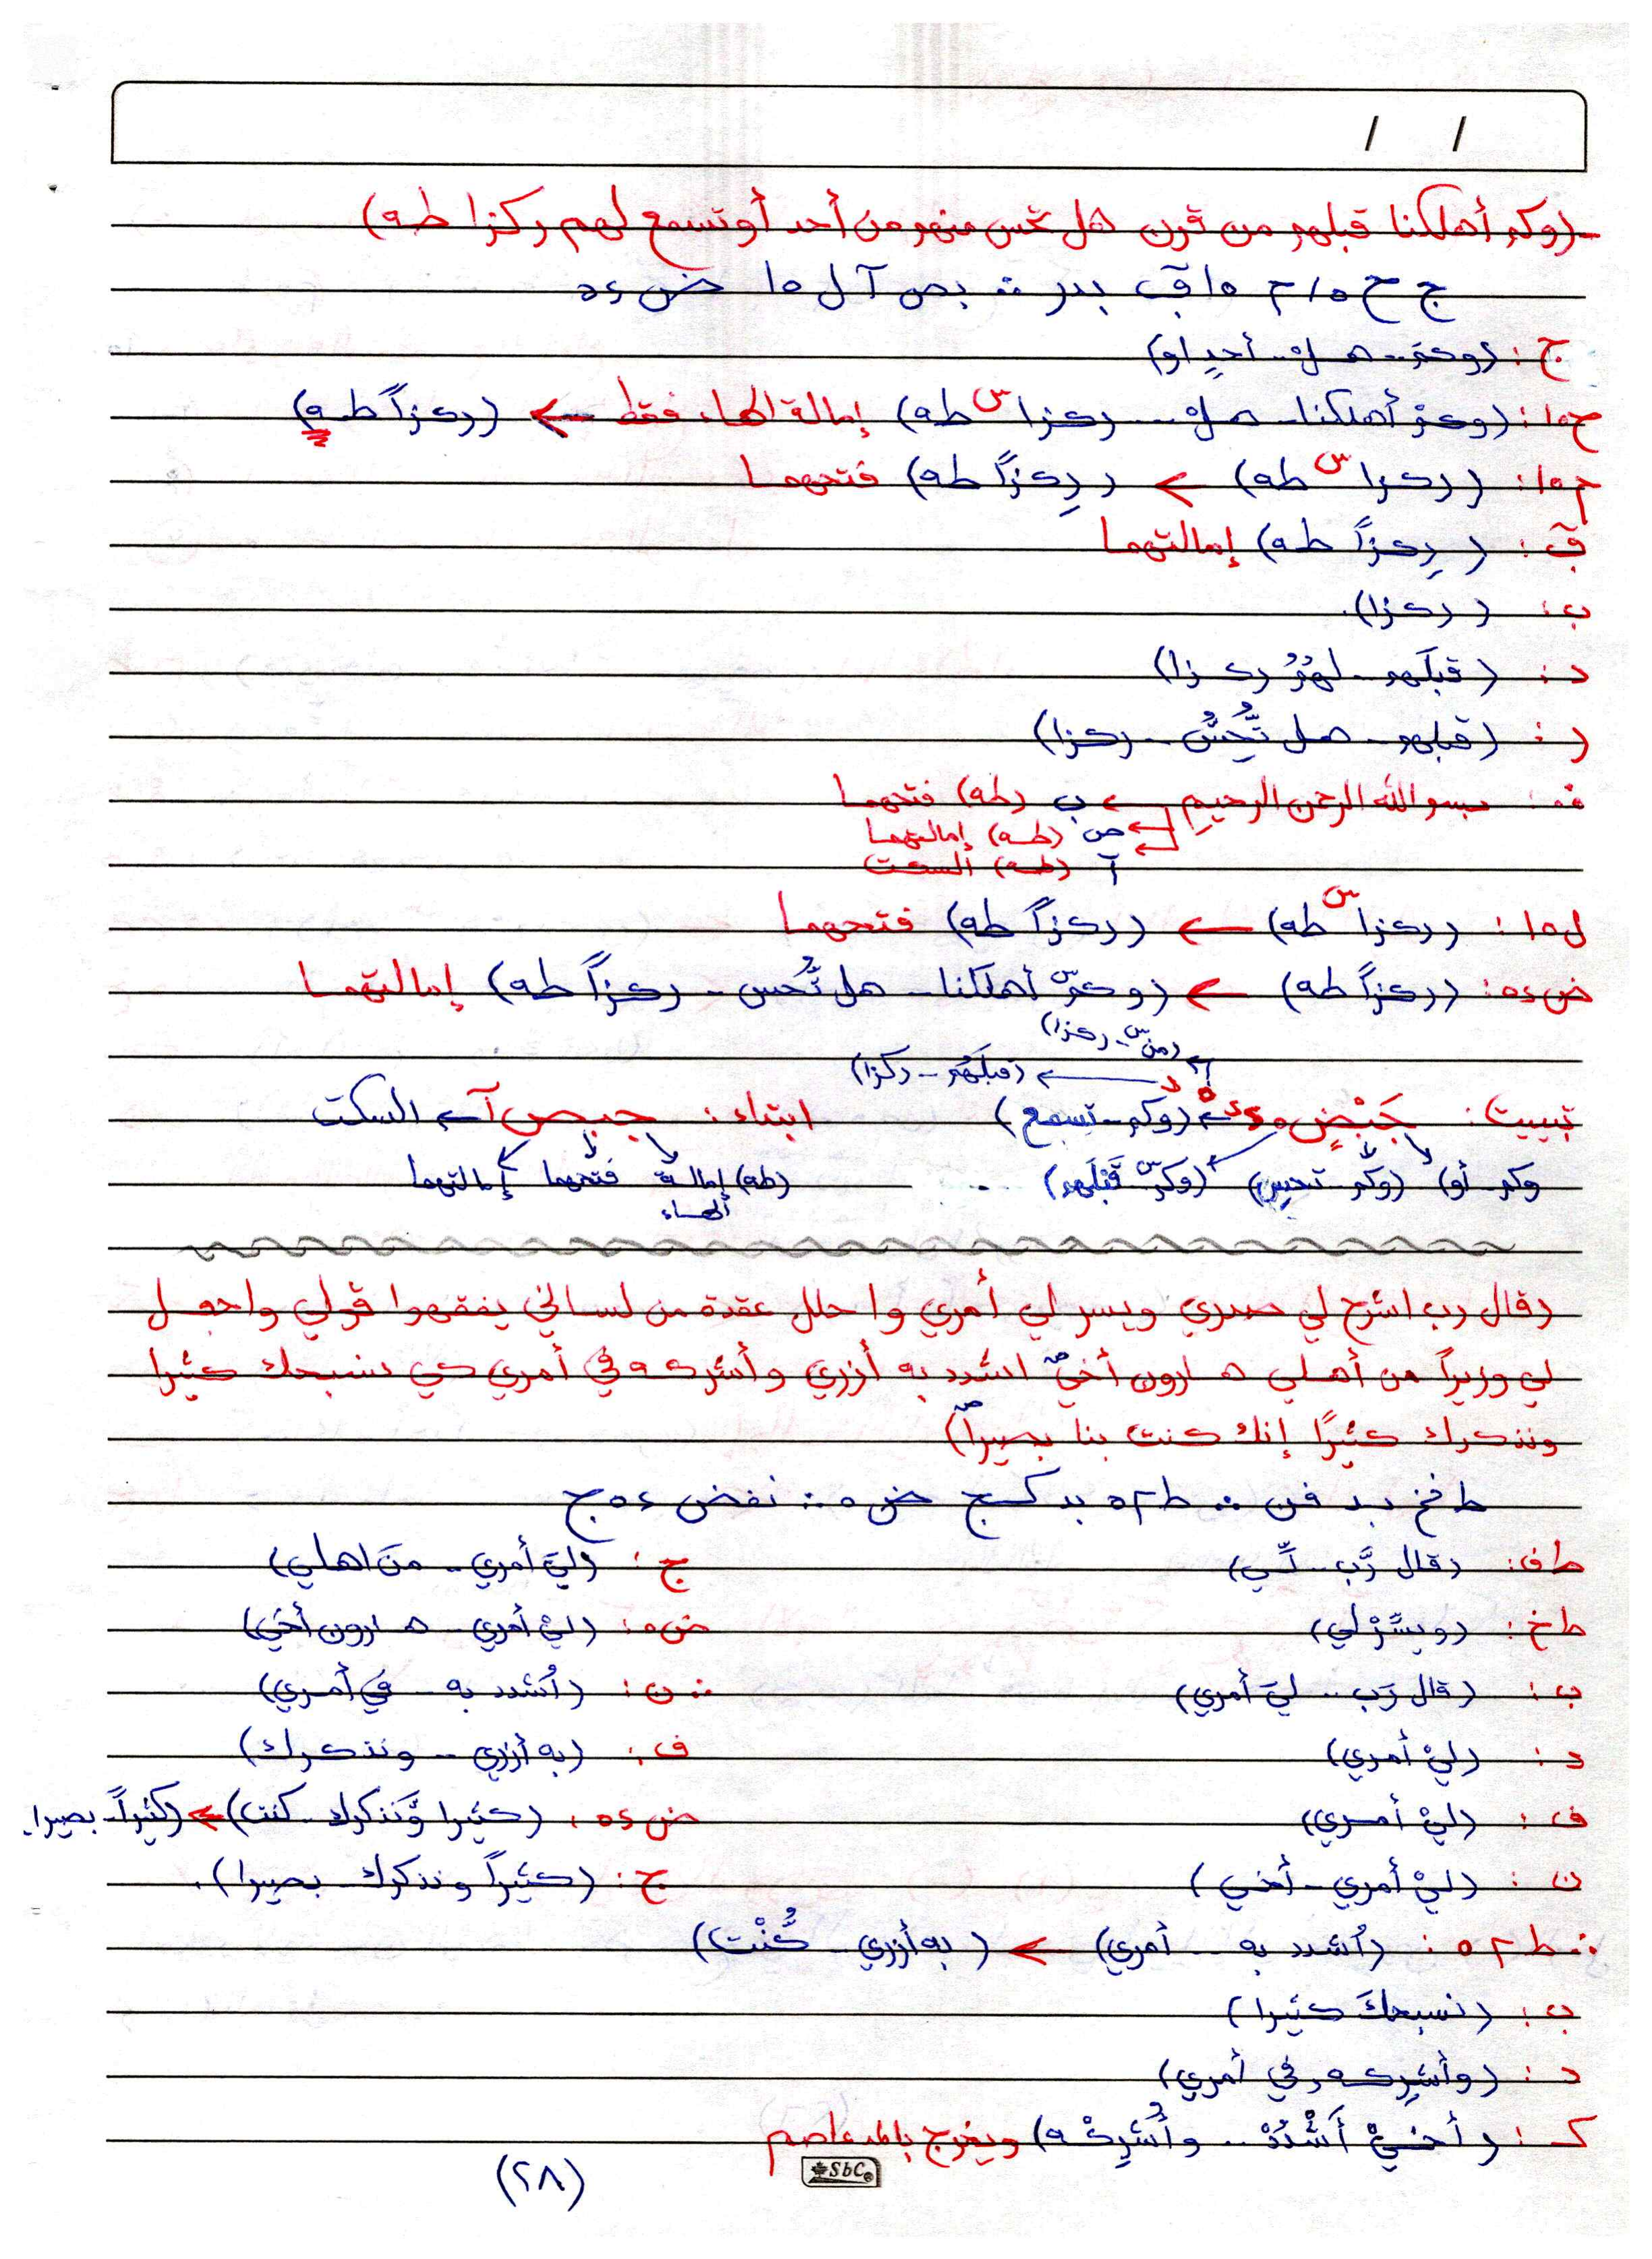 / /
-(وكم أهلكنا قبلهم من قرن هل تحس منهم من أحد أو تسمع لهم ركزا طه)
ج ح ١٥/م ١٥ قب بدر ∴ بص آ ل ١٥ ض ٤٥
ج : (وكم .. هل .. أحدٍ او)
ح١٥ : (وكمْ أهلكنا .. هل .. ركزا س طه) إمالة الهاء فقط ← (ركزاً طه)
م١٥ : (ركزا س طه) ← (ركزاً طه) فتحهما
ق : (ركزاً طه) إمالتهما
ب : (ركزا).
د : (قبلَهم .. لهمُ ركزا)
ر : (قبلهم .. هل تُّحِسُّ .. ركزا)
بسم الله الرحمن الرحيم ← ب (طه) فتحهما
ص (طه) إمالتهما
آ (طه) السكت
ل١٥ : (ركزا س طه) ← (ركزاً طه) فتحهما
ض٤٥ : (ركزاً طه) ← (وكم س أهلكنا .. هل تُّحس .. ركزاً طه) إمالتهما
(من س .. ركزا)
← (قبلَهم .. ركزا)
تبييت : جَبْضٍ ← (وكم .. تسمع) ابتداء : جبص آ ← السكت
وكم .. أو) (وكم .. تحس) (وكم س قَبْلَهم) (طه) إمالة الهاء فتحهما إمالتهما
(قال رب اشرح لي صدري ويسر لي أمري واحلل عقدة من لساني يفقهوا قولي واجعل
لي وزيراً من أهلي هارون أخي ص اشدد به أزري وأشركه في أمري كي نسبحك كثيرا
ونذكرك كثيرًا إنك كنت بنا بصيراً ص)
ط فخ بد فن ∴ ط ٢٥ بد كسج ض ٥ ∴ نفض ٤٥ ج
ط ف : (قال رَّب .. لِّي) ج : (ليَ أمري .. منَ اهلي)
ط خ : (ويسِّرْ لي) ض٥ : (ليْ أمري .. هارون أخي)
ب : (قال رَب .. ليَ أمري) ∴ ن : (اُشدد به .. في أمري)
د : (ليْ أمري) ف : (به أزري .. ونذكرك)
ف : (ليْ أمري) ض ٤٥ : (كثيرا وَّنذكرك .. كنت) ← (كثيراً .. بصيرا
ن : (ليْ أمري .. أخي) ج : (كثيراً ونذكرك .. بصيرا).
∴ ط ٢٥ : (اُشدد به .. أمري) ← (به أزري .. كُنْت)
ب : (نسبحكَ كثيرا)
د : (وأشركه في أمري)
كـ : (أخيْ أَشْدُدْ .. وأُشْرِكْه) ويخرج بالمد عاصم
SbC
(٢٨)